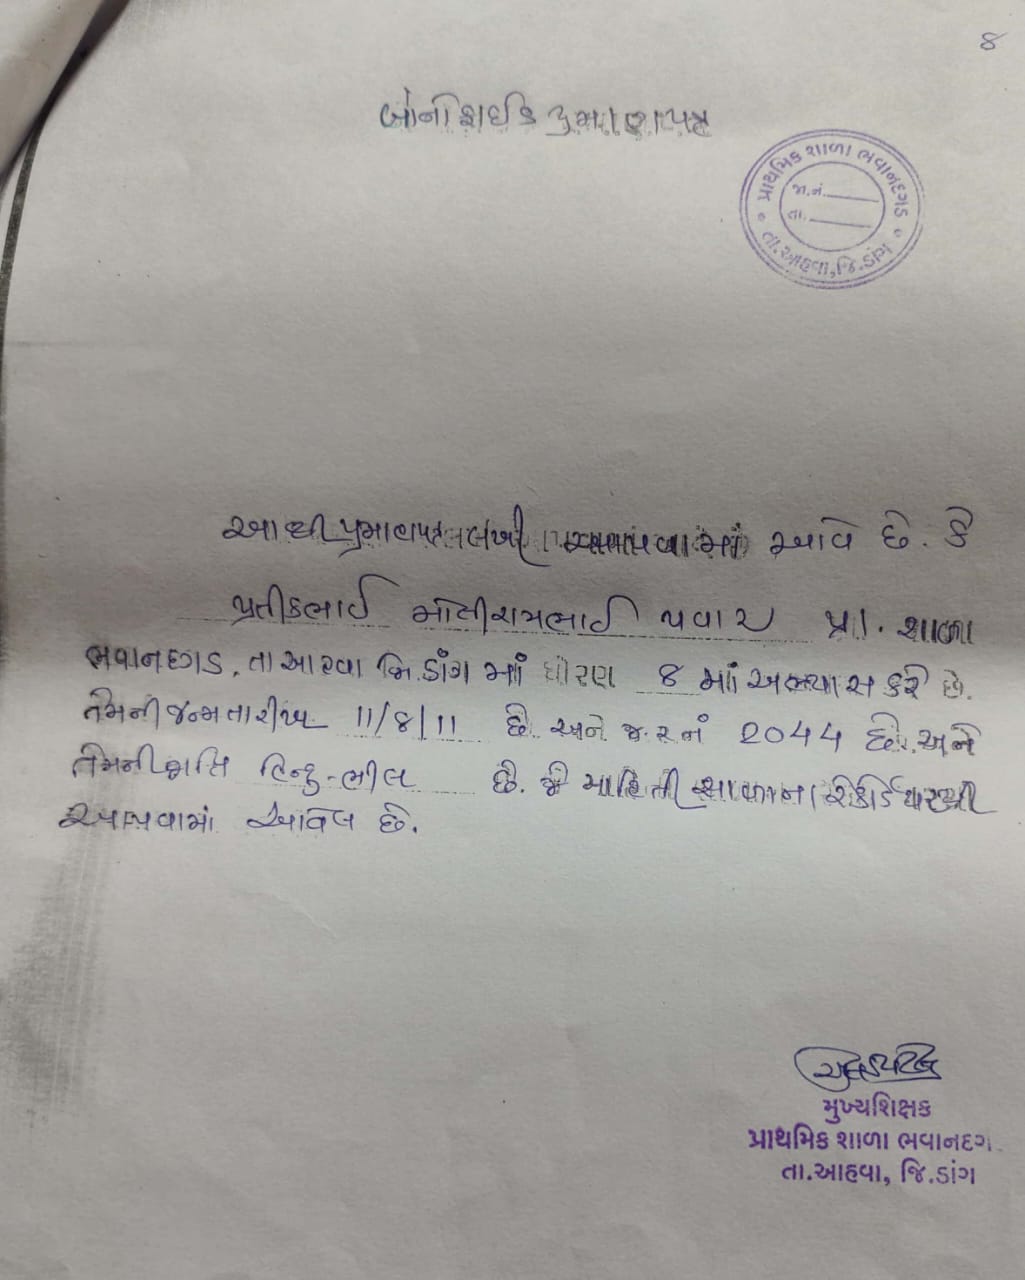 8
બોનાફાઈડ પ્રમાણપત્ર
પ્રાથમિક શાળા ભવાનદગડ
જા.નં.
તા.
તા.આહવા,જિ.ડાંગ
આથી પ્રમાણપત્ર લખી આપવામાં આવે છે. કે
પ્રતીકભાઈ મોતીરામભાઈ પવાર પ્રા. શાળા
ભવાનદગડ, તા આહવા જિ. ડાંગ માં ધોરણ ૪ માં અભ્યાસ કરે છે.
તેમની જન્મ તારીખ 11/8/11 છે. અને જ.ર નં 2044 છે. અને
તેમની જાતિ હિન્દુ-ભીલ છે. જે માહિતી શાળાના રેકર્ડ પરથી
આપવામાં આવેલ છે.
મુખ્યશિક્ષક
પ્રાથમિક શાળા ભવાનદગ
તા.આહવા, જિ.ડાંગ